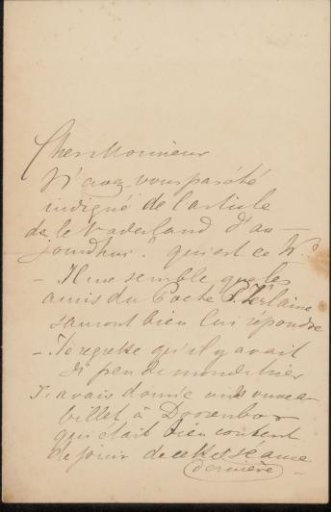 Cher Monsieur
N'avez vous pas été
indigné de l'article
de le Vaderland d'au-
jourdhui? qui est ce W.
- Il me semble que les
amis du Poete P. Verlaine
sauront bien lui répondre
- Je regrette qu'il y avait
si peu de monde hier
J'avais donné
billet à
qui était bien content
de jouir de cette séance
dernière